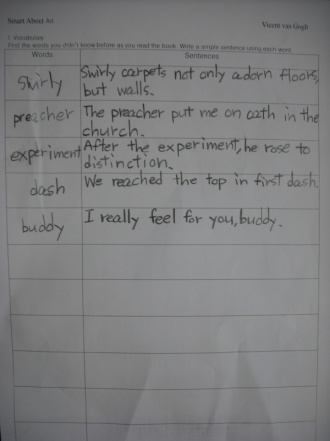 Smart About Art
Vicent van Gogh
I. Vocabulary
Find the words you didn't know before as you read the book. Write a simple sentence using each word.
Words
Sentences
Swirly
Swirly carpets not only adorn floors,
but walls.
preacher
The preacher put me on oath in the
church.
experiment
After the experiment, he rose to
distinction.
dash
We reached the top in first dash.
buddy
I really feel for you, buddy.